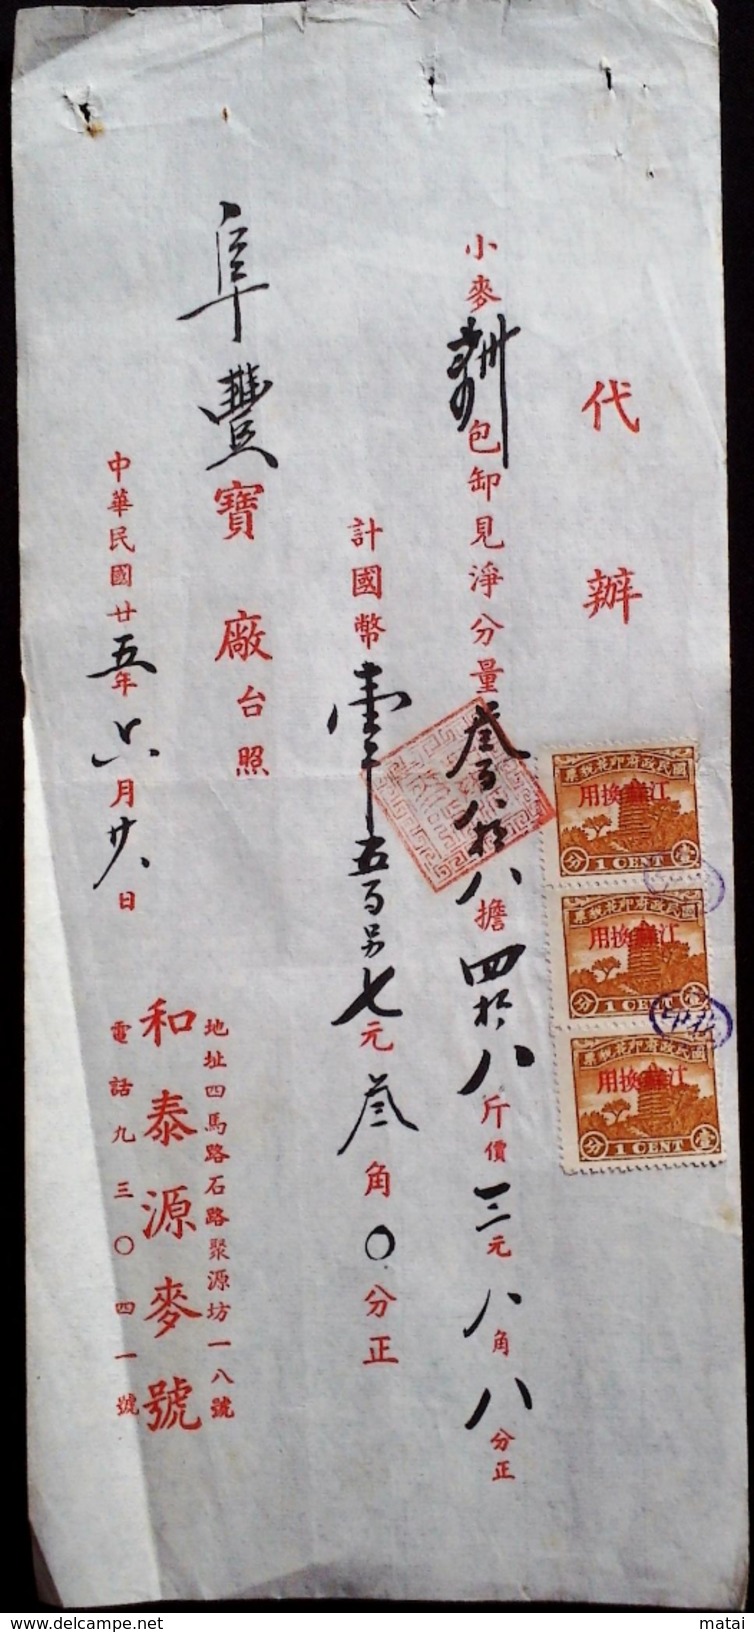 代辦
小麥 包卸見淨分量叁百八拾八擔四拾八斤價三元八角八分正
計國幣壹千五百另七元叁角〇分正
阜豐寶廠台照
中華民國廿五年六月廿八日
地址四馬路石路聚源坊一八號
和泰源麥號
電話九三〇四一號
國民政府印花稅票
用換蘇江
分 1 CENT 壹
國民政府印花稅票
用換蘇江
分 1 CENT 壹
國民政府印花稅票
用換蘇江
分 1 CENT 壹
matai